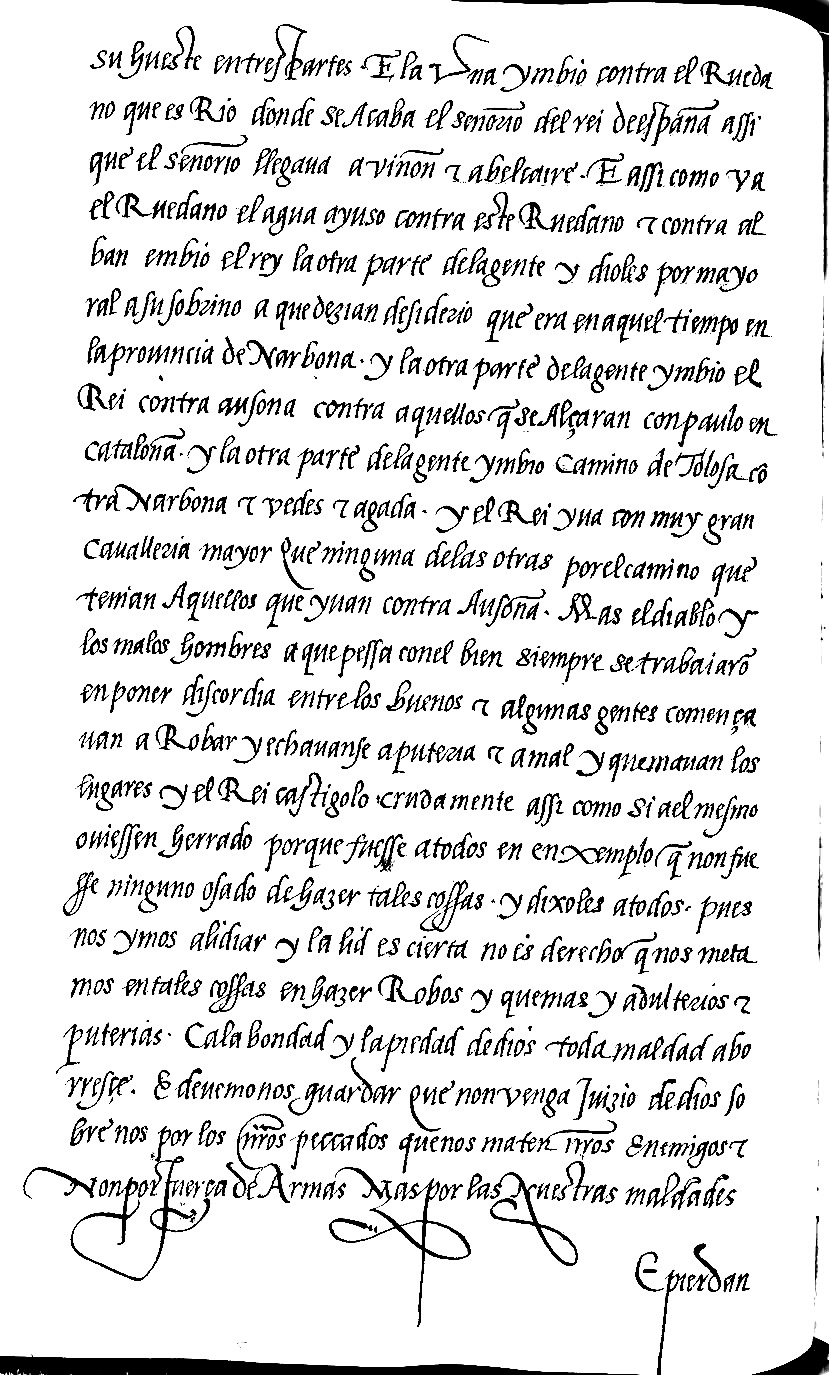 su hueste entres partes · E la Vna ymbio contra el Rueda
no que es Rio donde se Acaba el señorio del rei de españa assi
que el señorio llegaua a viñon ⁊ abelcaire · E assi como va
el Ruedano el agua ayuso contra este Ruedano ⁊ contra al
ban embio el rey la otra parte dela gente y dioles por mayo
ral a su sobrino a que dezian desiderio que era en aquel tiempo en
la prouincia de Narbona · y la otra parte dela gente ymbio el
Rei contra ausona contra aquellos q̃ se Alçaran con paulo en
cataloña · y la otra parte dela gente ymbio Camino de Tolosa cõ
tra Narbona ⁊ vedes ⁊ agada · y el Rei yua con muy gran
Cauallezia mayor que ninguna delas otras por el camino que
tenian Aquellos que yuan contra Ausoña · Mas el diablo y
los malos hombres a que pessa conel bien siempre se trabaiarõ
en poner discordia entre los buenos ⁊ algunas gentes comença
uan a Robar y echauanse a puteria ⁊ a mal y quemauan los
lugares y el Rei castigolo crudamente assi como si a el mesmo
ouiessen herrado porque fuesse a todos en enxemplo q̃ non fue
sse ninguno osado de hazer tales cossas · y dixoles a todos · pues
nos ymos alidiar y la lid es cierta no es derecho q̃ nos meta
mos en tales cossas en hazer Robos y quemas y adulterios ⁊
puterias · Ca la bondad y la piedad de dios toda maldad abo
rresçe . E deuemonos guardar que non venga Juizio de dios so
bre nos por los nr̃os peccados que nos maten nr̃os Enemigos ⁊
Non por fuerça de Armas Mas por las Nuestras maldades
E pierdan